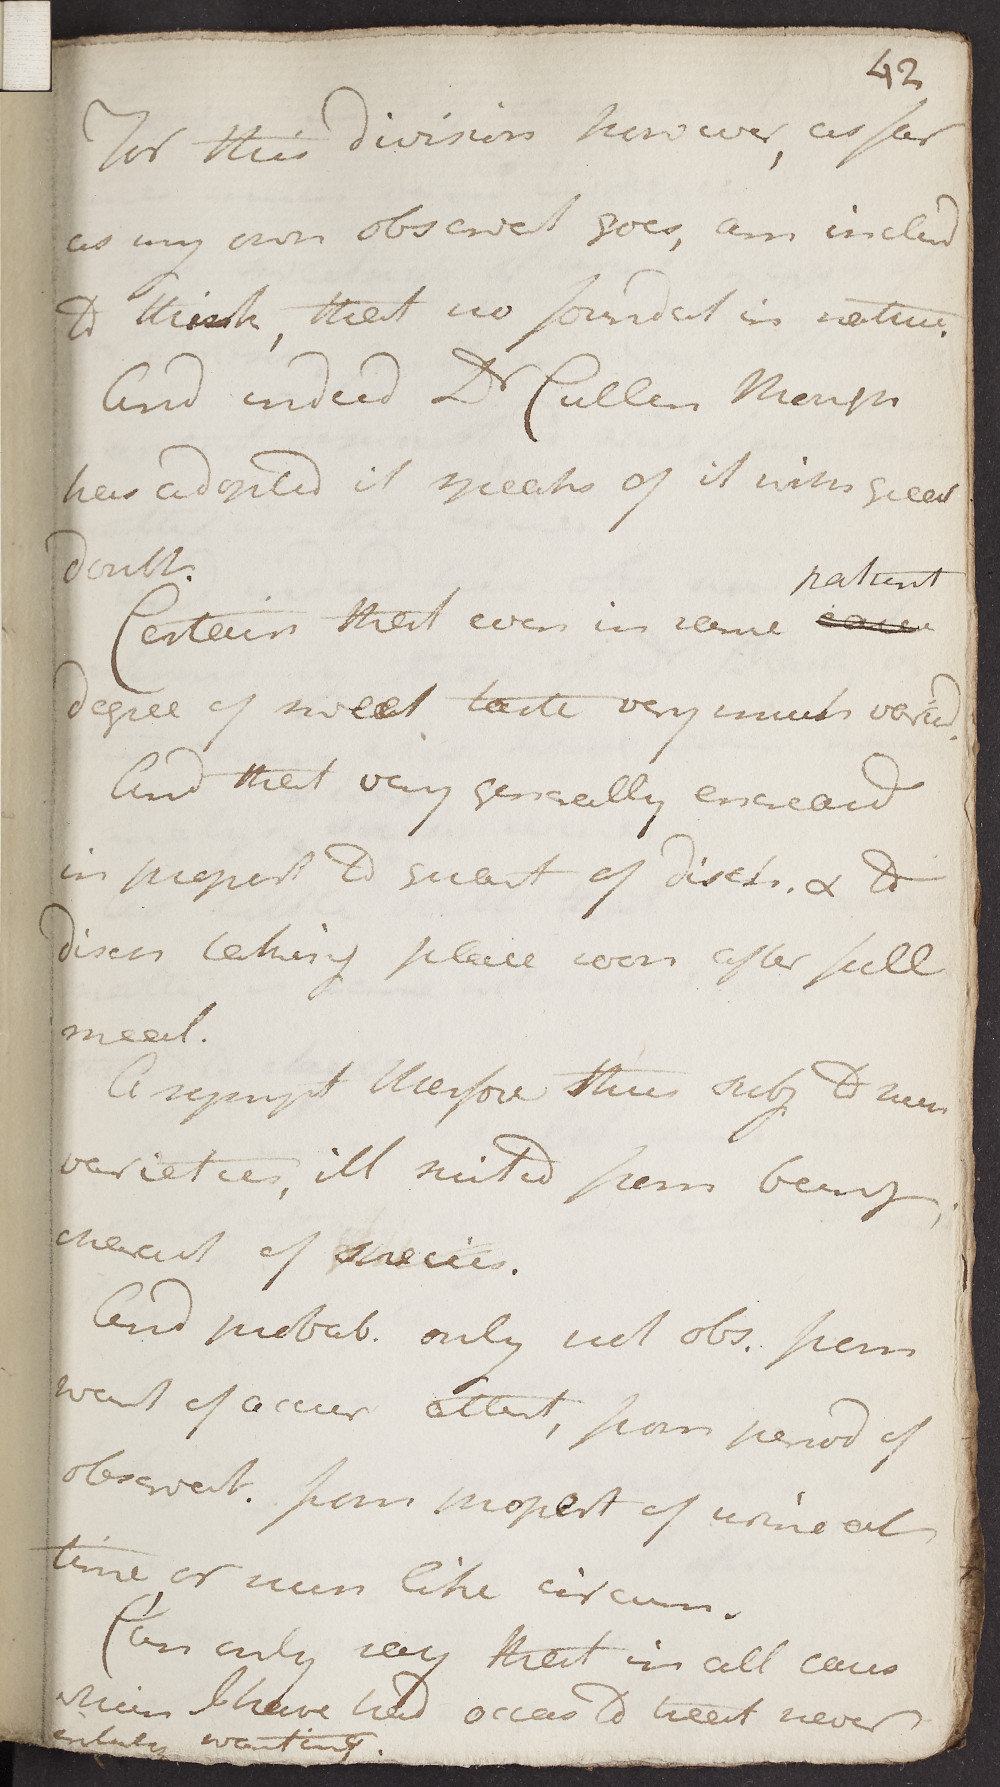 42
For this division however, as far
as my own observat goes, am inclind
to think, that no foundat in nature.
And indeed Dr Cullen though
has adopted it speaks of it with great
doubt.
Certain that even in same patient
degree of sweet taste very much varied.
And that very generally encreasd
in proport to quant of disch. & to
disch taking place soon after full
meal.
A sympt therfore thus subj to numr
varieties, ill suited from being
charact of species.
And probab. only not obs. from
want of accur attent, from period of
observat. from proport of urine at
time, or num like circum.
Can only say that in all cases
which I have had occas to treat never
entirely wanting.